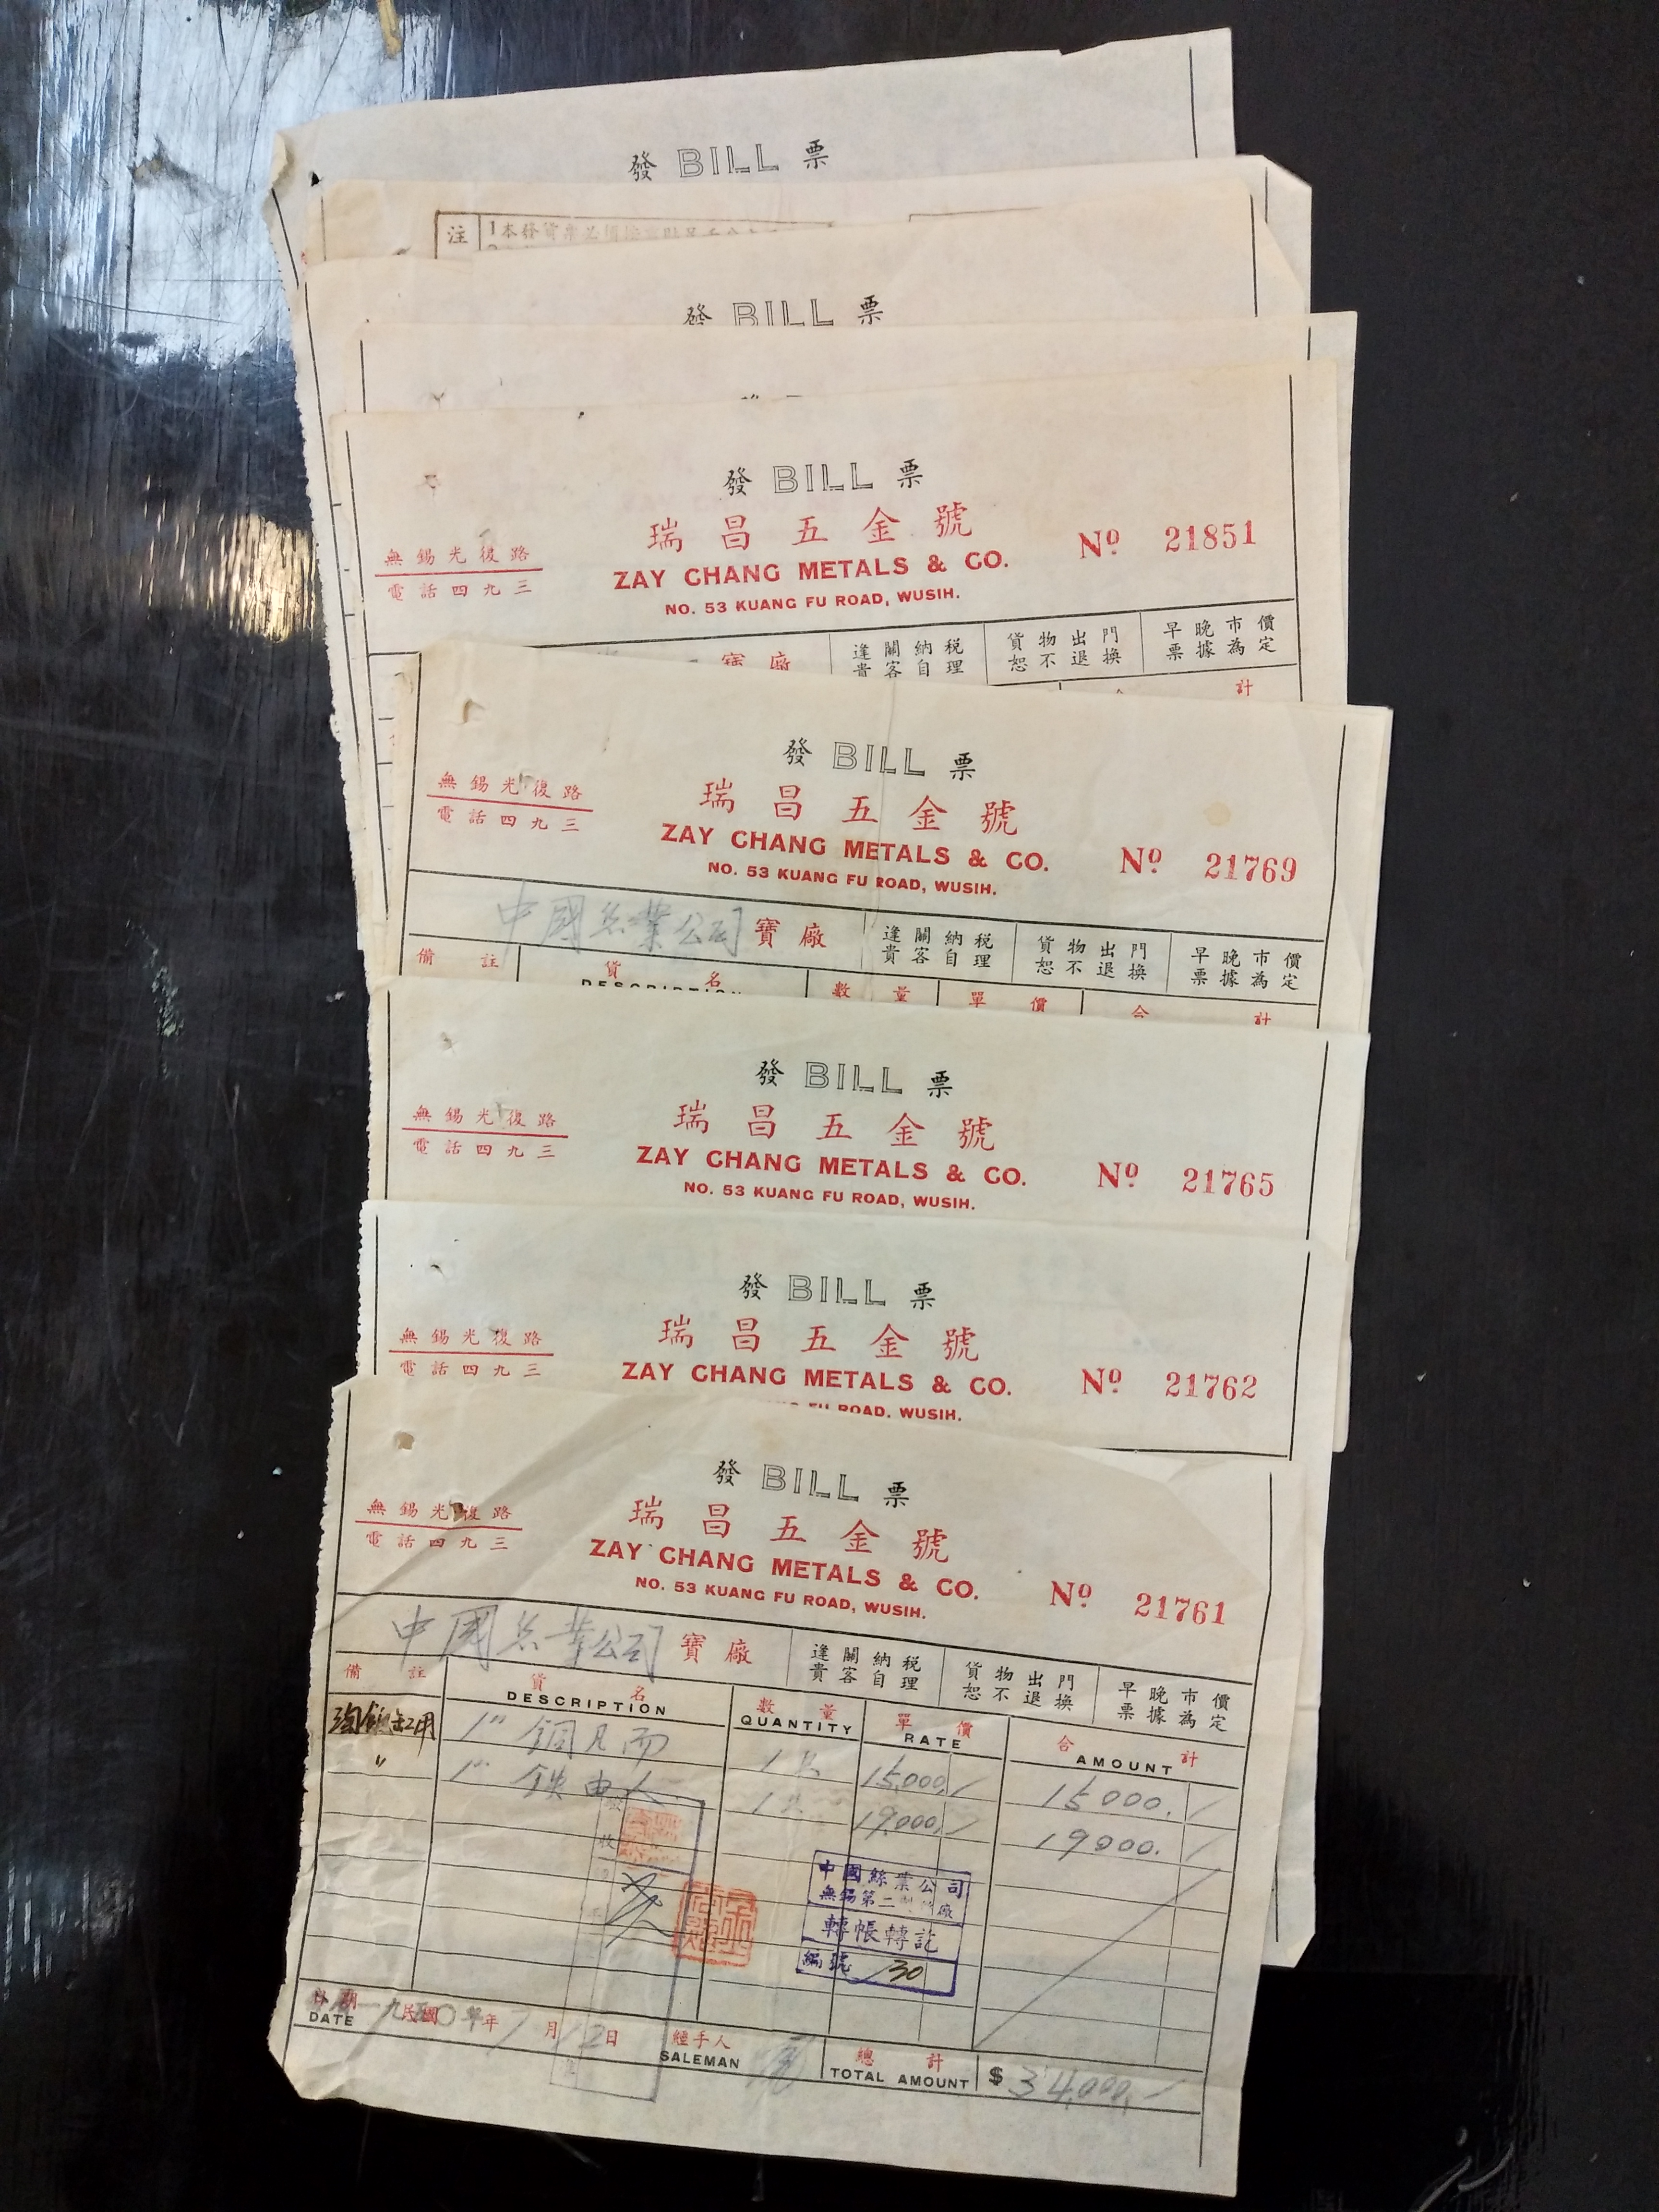 發 BILL 票
注 1 本發貨票
發 BILL 票
發 BILL 票
瑞昌五金號
ZAY CHANG METALS & CO.
NO. 53 KUANG FU ROAD, WUSIH.
無錫光復路
電話四九三
Nº 21851
寶廠
逢關納税
貴客自理
貨物出門
恕不退換
早晚市價
票據為定
計
發 BILL 票
瑞昌五金號
ZAY CHANG METALS & CO.
NO. 53 KUANG FU ROAD, WUSIH.
無錫光復路
電話四九三
Nº 21769
中國絲業公司 寶廠
逢關納税
貴客自理
貨物出門
恕不退換
早晚市價
票據為定
備註 貨名 數量 單價 合計
DESCRIPTION
發 BILL 票
瑞昌五金號
ZAY CHANG METALS & CO.
NO. 53 KUANG FU ROAD, WUSIH.
無錫光復路
電話四九三
Nº 21765
發 BILL 票
瑞昌五金號
ZAY CHANG METALS & CO.
FU ROAD, WUSIH.
無錫光復路
電話四九三
Nº 21762
發 BILL 票
瑞昌五金號
ZAY CHANG METALS & CO.
NO. 53 KUANG FU ROAD, WUSIH.
無錫光復路
電話四九三
Nº 21761
中國絲業公司 寶廠
逢關納税
貴客自理
貨物出門
恕不退換
早晚市價
票據為定
備註 貨名 數量 單價 合計
DESCRIPTION QUANTITY RATE AMOUNT
1" 銅凡而 1只 15,000 15000.
〃 1" 鉄由人 1只 19,000 19000.
中國絲業公司
無錫第二製絲廠
轉帳轉訖
編號 30
日期 民國 一九五〇年 7月12日 經手人 總計
DATE SALEMAN TOTAL AMOUNT $ 34,000.